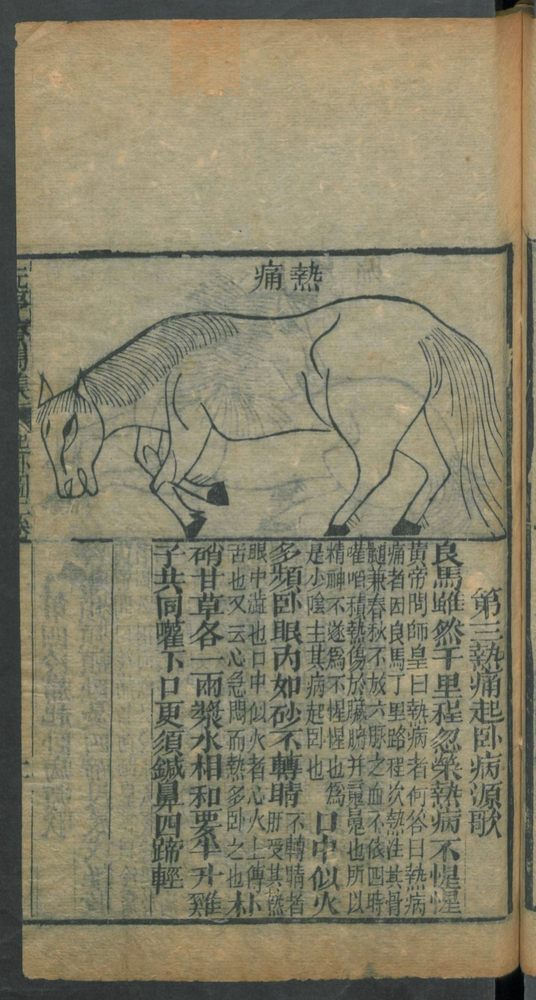 熱痛
第三熱痛起卧病源歌
良馬雖然千里程忽染熱病不惺惺
黄帝問師皇曰熱病者何答曰熱病
痛者因良馬丁里路程次熱注其骨
髓兼春秋不放六脉之血不依四時
嚾啗積熱傷於臟腑并鼻也所以
精神不遂為不惺惺也為
是小陰主其病起卧也
口中似火
多頻卧眼内如砂不轉睛
不轉睛者
肝受其熱
眼中澁也口中似火者心火上傳
舌也又云心急悶而熱多卧之也
朴
硝甘草各一兩漿水相和要半升雞
子共同嚾下口更須鍼鼻四蹄輕